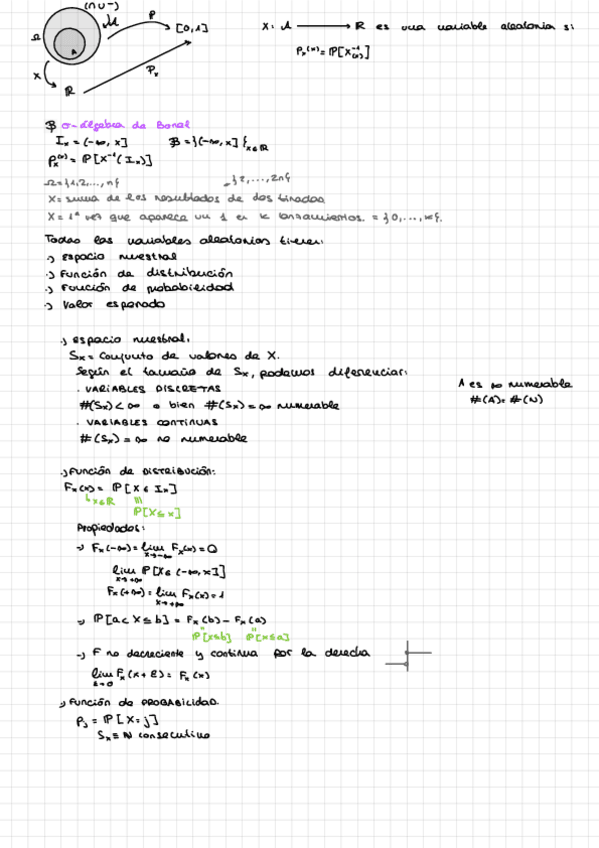 (∩ ∪ -)
Ω A 𝒜 P [0,1]
X: 𝒜 → ℝ es una variable aleatoria si
Pₓ(x) = ℙ[X⁻¹(x)]
X ℝ Pₓ
𝔅 σ-álgebra de Borel
Iₓ = (-∞, x] 𝔅 = }(-∞, x]{ x∈ℝ
Pₓ(x) = ℙ[X⁻¹(Iₓ)]
Ω = }1,2,...,n{ }2,...,2n{
X = suma de los resultados de dos tiradas
X = 1ª vez que aparece un 1 en k lanzamientos. = }0,...,k{.
Todas las variables aleatorias tienen:
·) Espacio muestral
·) Función de distribución
·) Función de probabilidad
·) Valor esperado
·) Espacio muestral.
Sₓ = Conjunto de valores de X.
Según el tamaño de Sₓ, podemos diferenciar:
· VARIABLES DISCRETAS
#(Sₓ) < ∞ o bien #(Sₓ) = ∞ numerable
A es ∞ numerable
#(A) = #(N)
· VARIABLES CONTINUAS
#(Sₓ) = ∞ no numerable
·) Función de DISTRIBUCIÓN:
Fₓ(x) = ℙ[X ∈ Iₓ]
↳ x∈ℝ
ℙ[X ≤ x]
Propiedades:
-) Fₓ(-∞) = lim x→-∞ Fₓ(x) = 0
lim x→+∞ ℙ[X ∈ (-∞, x]]
Fₓ(+∞) = lim x→+∞ Fₓ(x) = 1
-) ℙ[a < X ≤ b] = Fₓ(b) - Fₓ(a)
ℙ[X≤b] ℙ[X≤a]
-) F no decreciente y continua por la derecha
lim ε→0 Fₓ(x + ε) = Fₓ(x)
·) Función de PROBABILIDAD
Pj = ℙ[X = j]
Sₓ ≡ N consecutivo